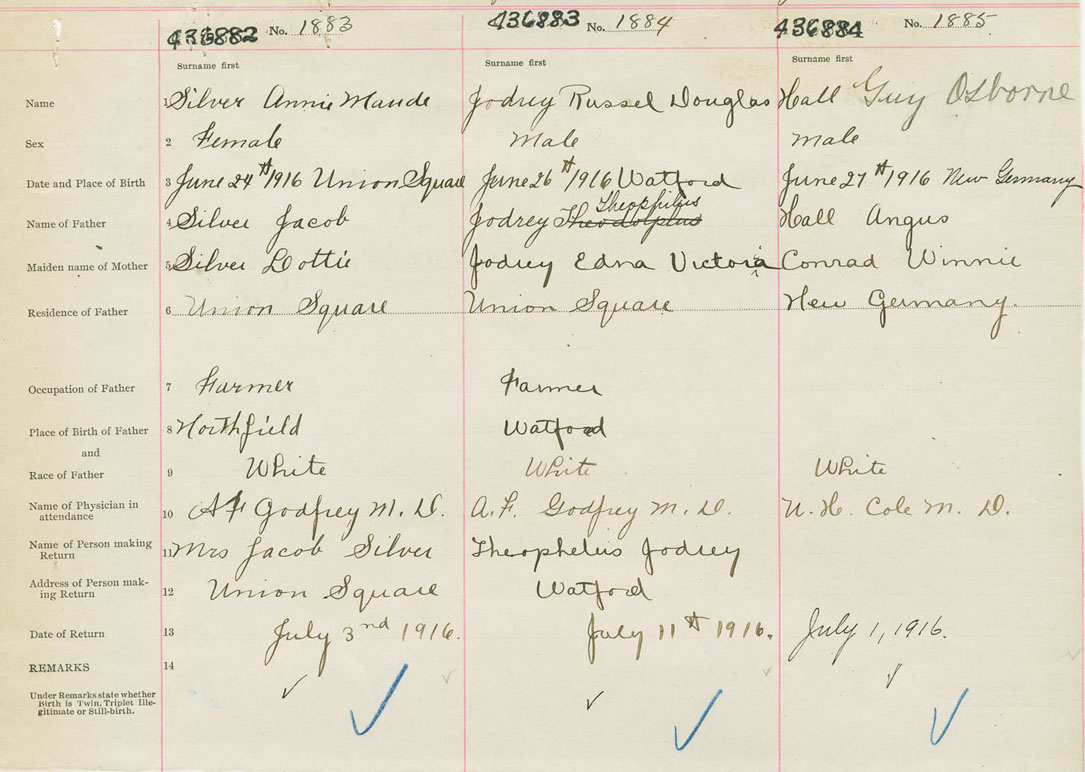 436882 No. 1883 436883 No. 1884 436884 No. 1885
Surname first Surname first Surname first
Name 1 Silver Annie Maude Jodrey Russel Douglas Hall Guy Osborne
Sex 2 Female Male Male
Date and Place of Birth 3 June 24th/1916 Union Square June 26th/1916 Watford June 27th/1916 New Germany
Theophilus
Name of Father 4 Silver Jacob Jodrey Theodolphus Hall Angus
Maiden name of Mother 5 Silver Dottie Jodrey Edna Victoria Conrad Winnie
Residence of Father 6 Union Square Union Square New Germany.
Occupation of Father 7 Farmer Farmer
Place of Birth of Father 8 Northfield Watford
and
Race of Father 9 White White White
Name of Physician in
attendance 10 AF Godfrey M. D. A. F. Godfrey M. D. N. H. Cole M. D.
Name of Person making
Return 11 Mrs Jacob Silver Theophelus Jodrey
Address of Person mak-
ing Return 12 Union Square Watford
Date of Return 13 July 3rd 1916. July 11th 1916. July 1, 1916.
REMARKS 14
Under Remarks state whether
Birth is Twin, Triplet Ille-
gitimate or Still-birth.